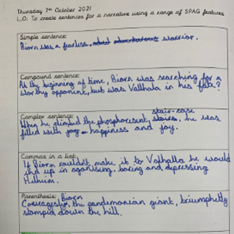 Thursday 7th October 2021
L.O: To create sentences for a narrative using a range of SPAG features
Simple sentence:
Bjorn was a fearless, warrior.
Compound sentence:
At the beginning of time, Bjorn was searching for a
worthy opponent, but was Valhalla in his fate?
Complex sentence:
stair-case
When he climbed the phosphorescent stairs, he was
filled with joy happiness and joy.
Commas in a list:
If Bjorn couldn't make it to Valhalla he would
end up in agonising, boring and depressing
Parenthesis:
Bjorn
Courageously, the giant, triumphantly
stomped down the hill.